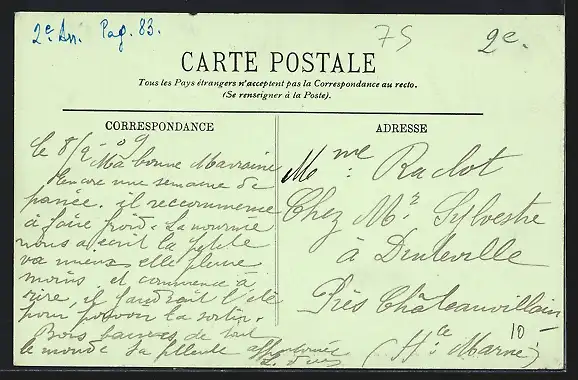 2e Arr. Pag. 83.
75
2e.
CARTE POSTALE
Tous les Pays étrangers n'acceptent pas la Correspondance au recto.
(Se renseigner à la Poste).
CORRESPONDANCE
le 8/2-09
Ma bonne Marraine
Encore une semaine de
passée. il recommence
à faire froid. La nourrice
nous a écrit la petite
va mieux elle pleure
moins et commence à
rire, il faudrait l'été
pour pouvoir la sortir.
Bons baisers de tout
le monde ta filleule
ADRESSE
Mme Raclot
Chez Mr Sylvestre
à Dinteville
Près Châteauvillain
(Hte Marne)
10